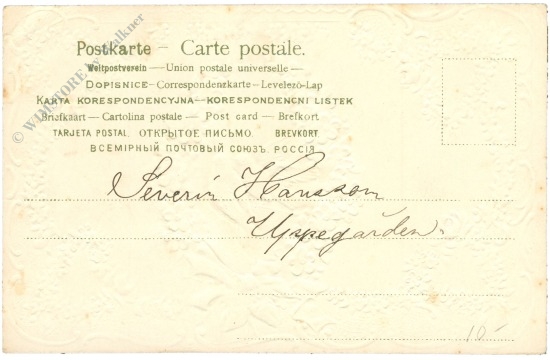 Postkarte – Carte postale.
Weltpostverein — Union postale universelle —
Dopisnice — Correspondenzkarte — Levelező-Lap
Karta korespondencyjna — korespondencni listek
Briefkaart — Cartolina postale — Post card — Brefkort
Tarjeta postal. Открытое письмо. Brevkort
Всемірный почтовый союзъ. Россія
Severin Hansson
Uppegården.
10-
© WIMSTORE by Falkner